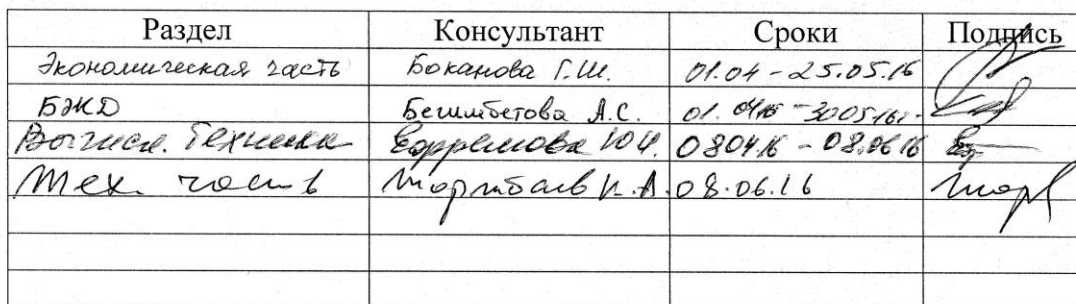 Раздел Консультант Сроки Подпись
Экономическая часть Боканова Г.Ш. 01.04 - 25.05.16
БЖД Бегимбетова А.С. 01.04.16 - 30.05.16г.
Вычисл. Техника Ефремова Ю.И. 08.04.16 - 08.06.16
Тех. часть 08.06.16